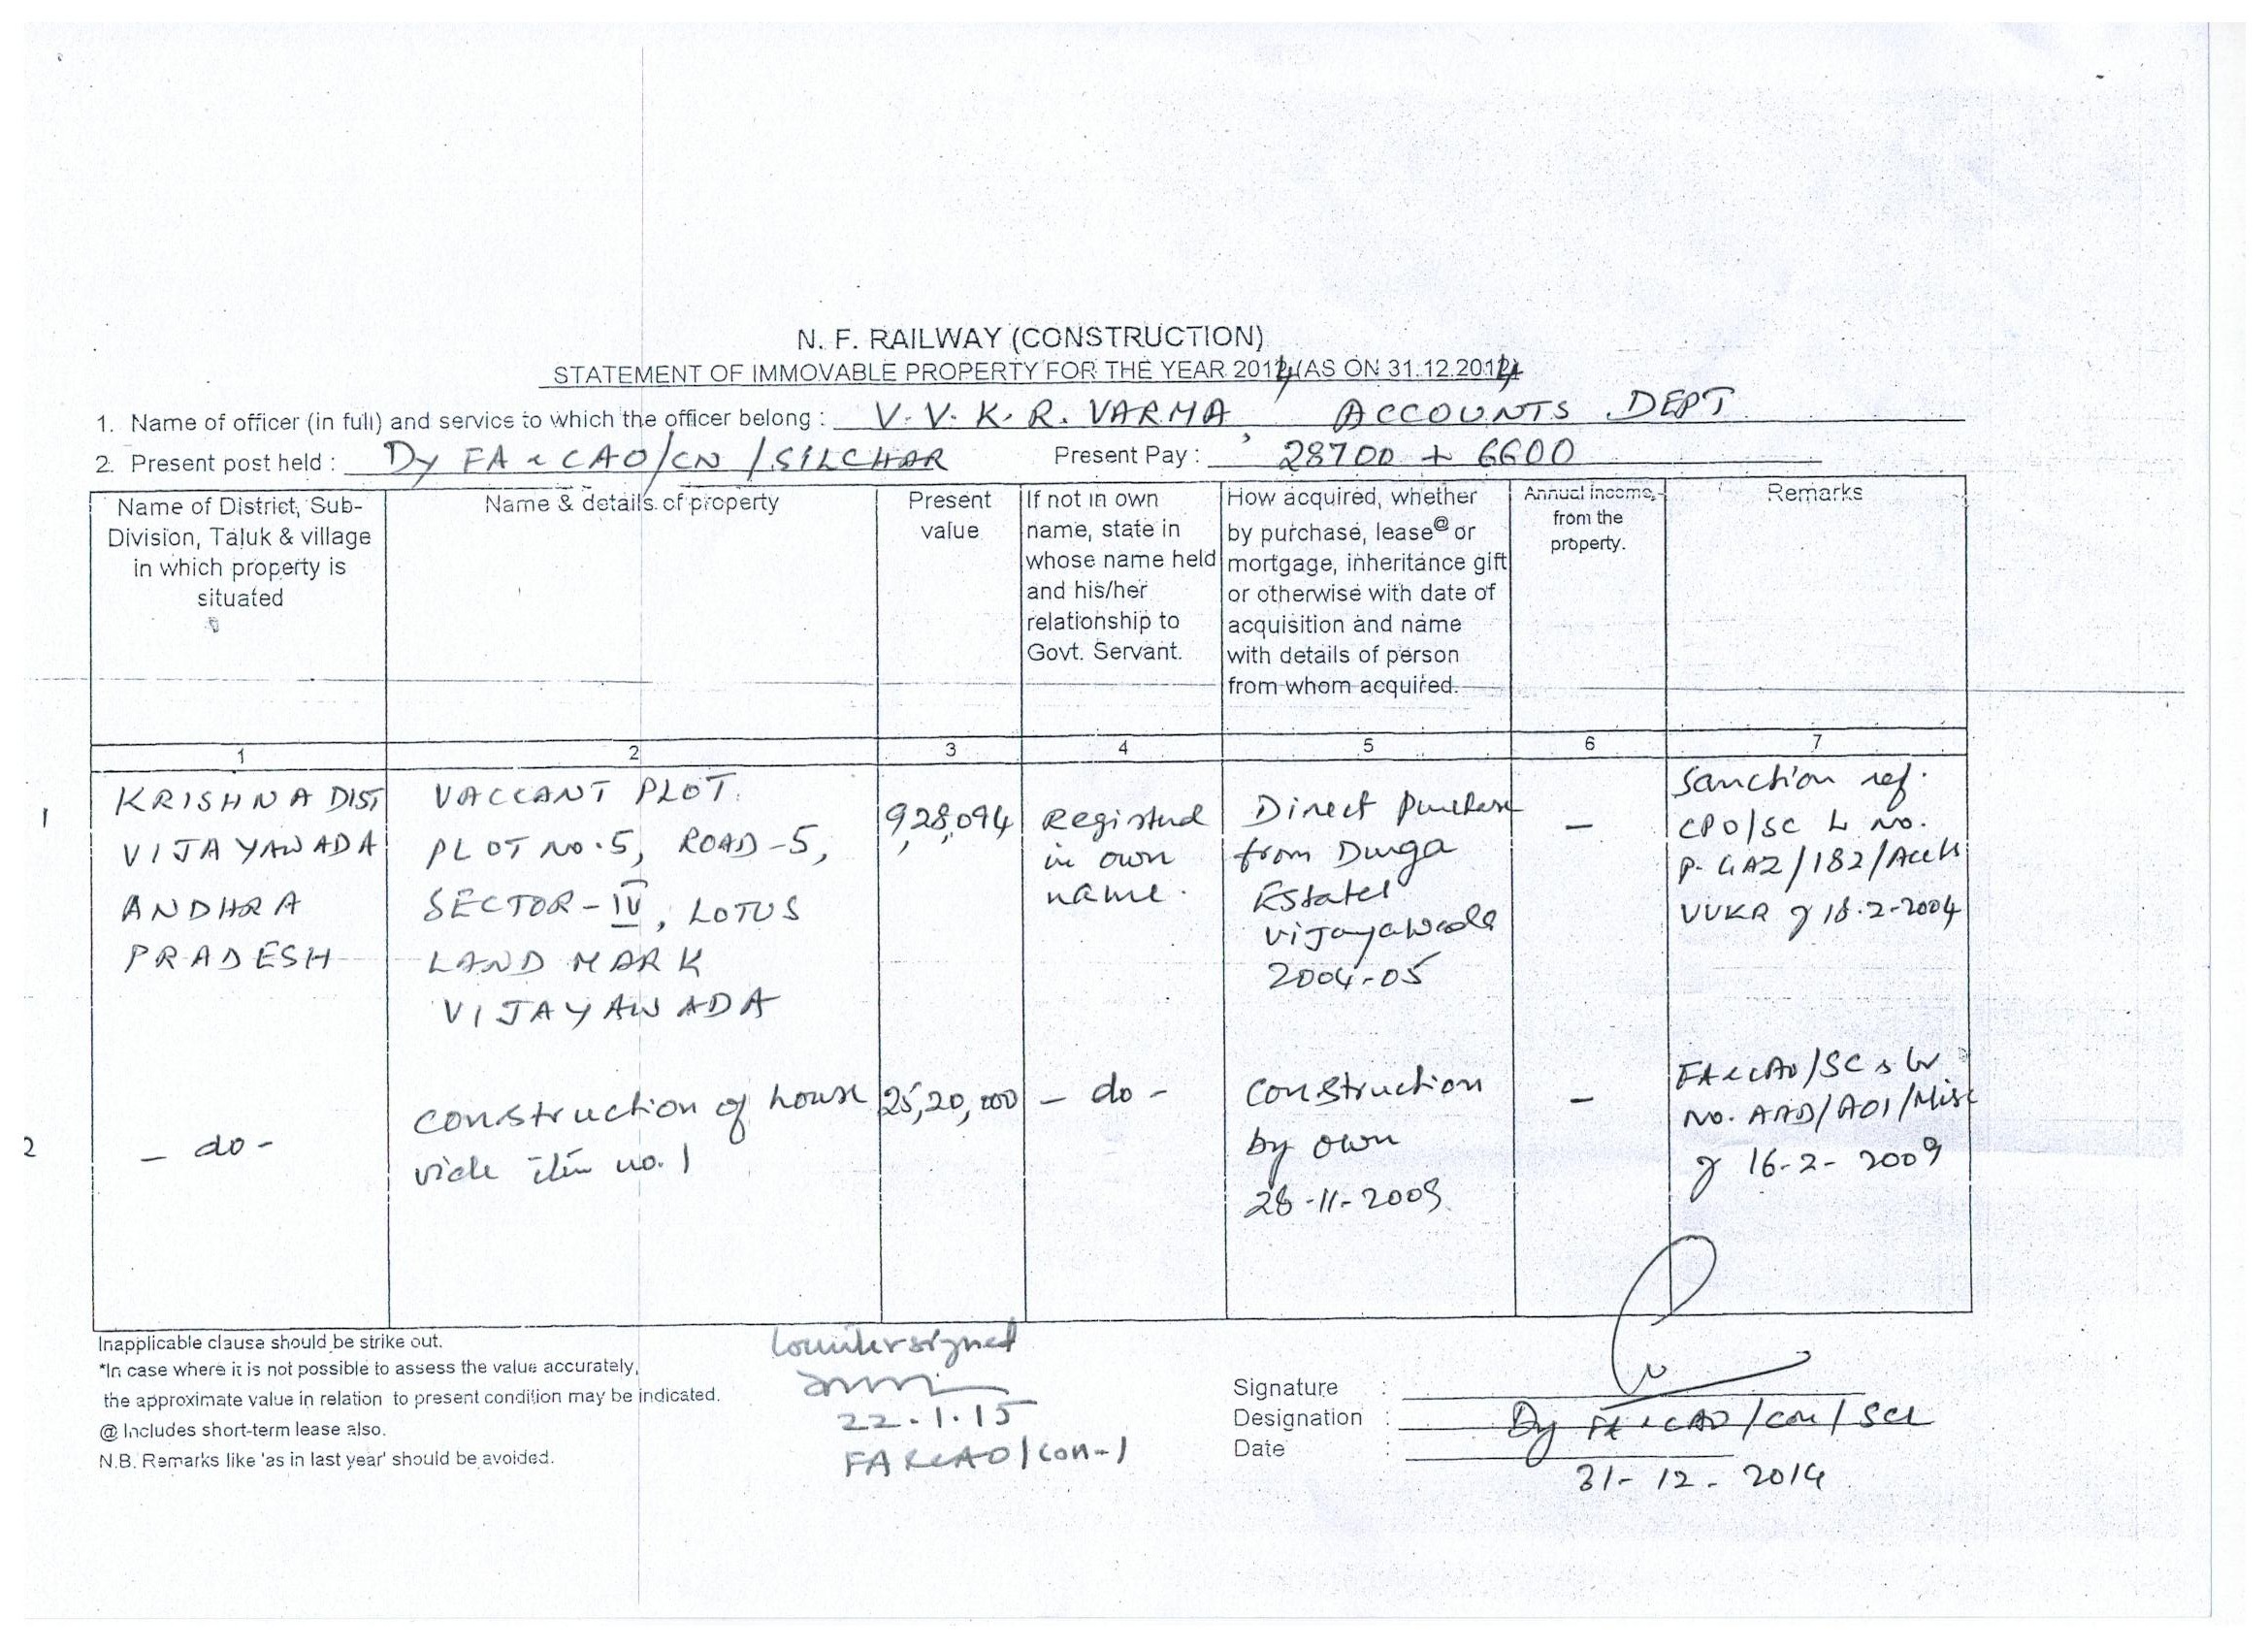 N. F. RAILWAY (CONSTRUCTION)
STATEMENT OF IMMOVABLE PROPERTY FOR THE YEAR 2014 (AS ON 31.12.2014)
1. Name of officer (in full) and service to which the officer belong : V. V. K. R. VARMA, ACCOUNTS DEPT
2. Present post held : Dy FA & CAO/CN/SILCHAR Present Pay : 28700 + 6600
Name of District, Sub-
Division, Taluk & village
in which property is
situated
Name & details of property
Present
value
If not in own
name, state in
whose name held
and his/her
relationship to
Govt. Servant.
How acquired, whether
by purchase, lease@ or
mortgage, inheritance gift
or otherwise with date of
acquisition and name
with details of person
from whom acquired.
Annual income,
from the
property.
Remarks
1 2 3 4 5 6 7
1
KRISHNA DIST
VIJAYAWADA
ANDHRA
PRADESH
VACCANT PLOT.
PLOT NO.5, ROAD-5,
SECTOR-IV, LOTUS
LAND MARK
VIJAYAWADA
9,28,094
Registered
in own
name.
Direct Purchase
from Durga
Estates
Vijayawada
2004-05
-
Sanction ref.
CPO/SC L No.
P. GAZ/182/Accts
VVKR of 18.2-2004
2
- do -
construction of house
vide item no. 1
25,20,000
- do -
Construction
by own
28-11-2009
-
FA & CAO/SC's Lr
No. AAD/AO1/Misc
of 16-2-2009
Inapplicable clause should be strike out.
*In case where it is not possible to assess the value accurately,
the approximate value in relation to present condition may be indicated.
@ Includes short-term lease also.
N.B. Remarks like 'as in last year' should be avoided.
Countersigned
22.1.15
FA & CAO/Con-1
Signature :
Designation : Dy FA & CAO/Con/SCL
Date :
31-12-2014